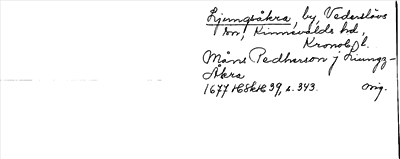 Ljungsåkra, by, Vederslövs
sn, Kinnevalds hd,
Kronob. l.
Måns Pedherson j Liungz-
Åkra
1677 HSkH 39, s. 343. orig.